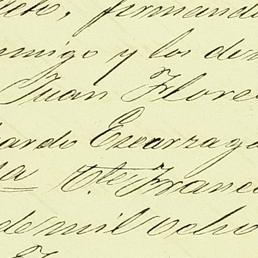 acto, firmando
emigo y los dem
Juan Flore
ardo Escarraga
sa Cte Franc
de mil ocho